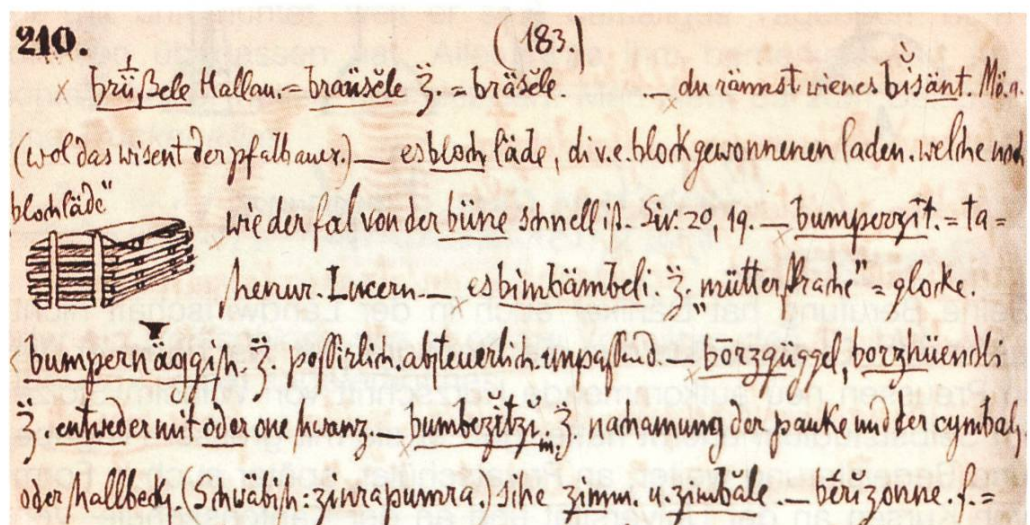 210. (183.)
× brü̆ßele Hallau. = braüsĕle Z̈. = bräsĕle. — du rännst wie nes bĭsänt. Mö.n.
(wol das wisent der pfalbauer.) — es bloch läde, di v. e. block gewonnenen laden. welche noch
blochläde"
wie der fal von der büne schnell iß. Sir. 20, 19. — bumperzit. = ta=
henur. Lucern. — es bimbämbeli. Z̈. "müttersprache" = glocke.
bumpernäggish. Z̈. possirlich. abteuerlich. unpassend. — bōrzgüggel, borzhüendli
Z̈. entweder mit oder one hwanz. — bumbezĭtzi in Z̈. nachamung der pauke und der cymbaln
oder hallbeckn. (Schwäbish: zinrapumra.) sihe zimm. u. zimbăle. — bērĭzonne. f. =